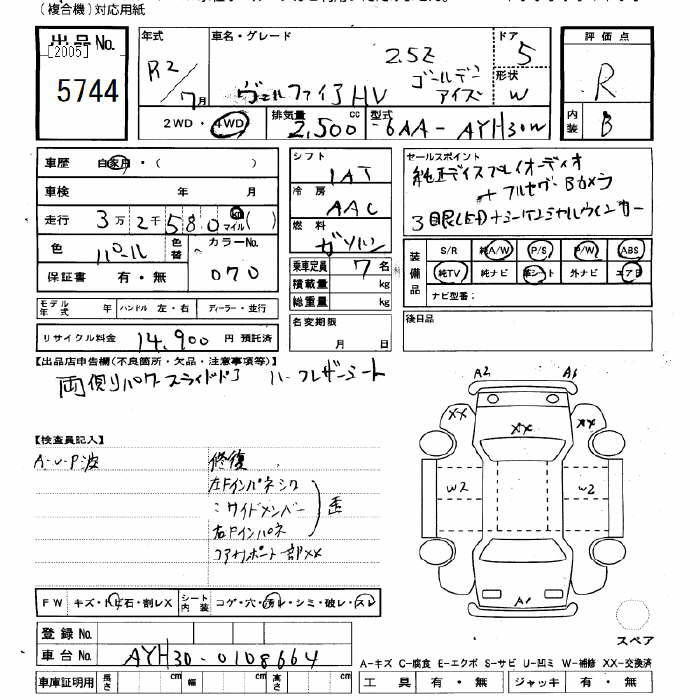 (複合機)対応用紙
出品No.
[2005]
5744
年式
R2/7月
車名・グレード
ヴェルファイアHV
2.5Z
ゴールデン
アイズ
ドア
5
形状
W
評価点
R
内装
B
2WD・4WD
排気量
2,500cc
型式
6AA-AYH30W
車歴
自家用・( )
車検 年 月
走行 3万2千580 km マイル( )
色 パール 色替
カラーNo.
070
保証書 有・無
シフト
IAT
冷房
AAC
燃料
ガソリン
乗車定員 7名
積載量 kg
総重量 kg
名変期限
月 日
セールスポイント
純正ディスプレイオーディオ
+フルセグ・Bカメラ
3眼LED+シーケンシャルウインカー
装備品
S/R 純A/W P/S P/W ABS
純TV 純ナビ 革シート 外ナビ エアB
ナビ型番:
後日品
モデル年式 年 ハンドル 左・右 ディーラー・並行
リサイクル料金 14,900円 預託済
【出品店申告欄(不良箇所・欠品・注意事項等)】
両側パワースライドドア ハーフレザーシート
【検査員記入】
A・U・P・波
修復
左Fインパネシワ
〃サイドメンバー
右Fインパネ
歪
コアサポート部XX
A2 A1
XX XX XX
W2 W2
A1
スペア
FW キズ・トビ石・割レX シート内装 コゲ・穴・汚レ・シミ・破レ・スレ
登録No.
車台No. AYH30-0108664
車庫証明用 長さ cm 幅 cm 高さ cm
A−キズ C−腐食 E−エクボ S−サビ U−凹ミ W−補修 XX−交換済
工具 有・無 ジャッキ 有・無